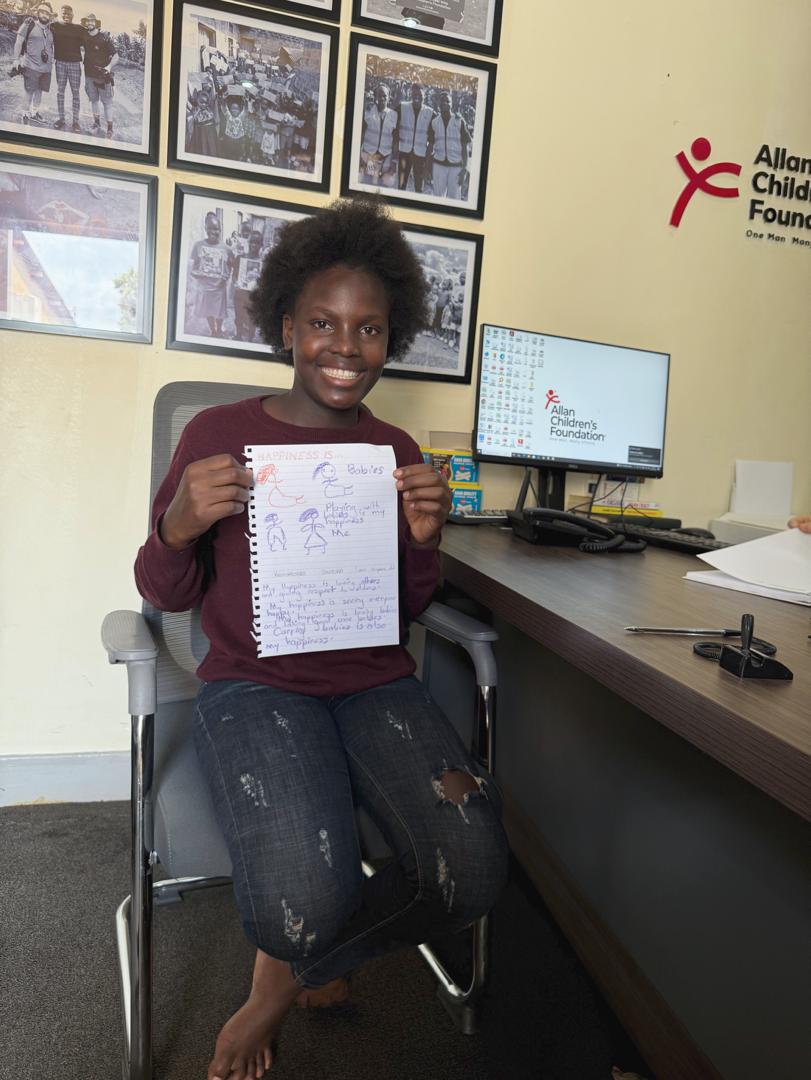 Allan
Child
Found
One Man Man
Allan
Children's
Foundation
HAPPINESS IS...
Babies
Playing with
babies is my
happiness
Me
My Happiness is loving others
and giving respect to
My happiness is seeing everyone
happy. My happiness is loving babies
and taking good care babies.
Carrying babies is also
my happiness.